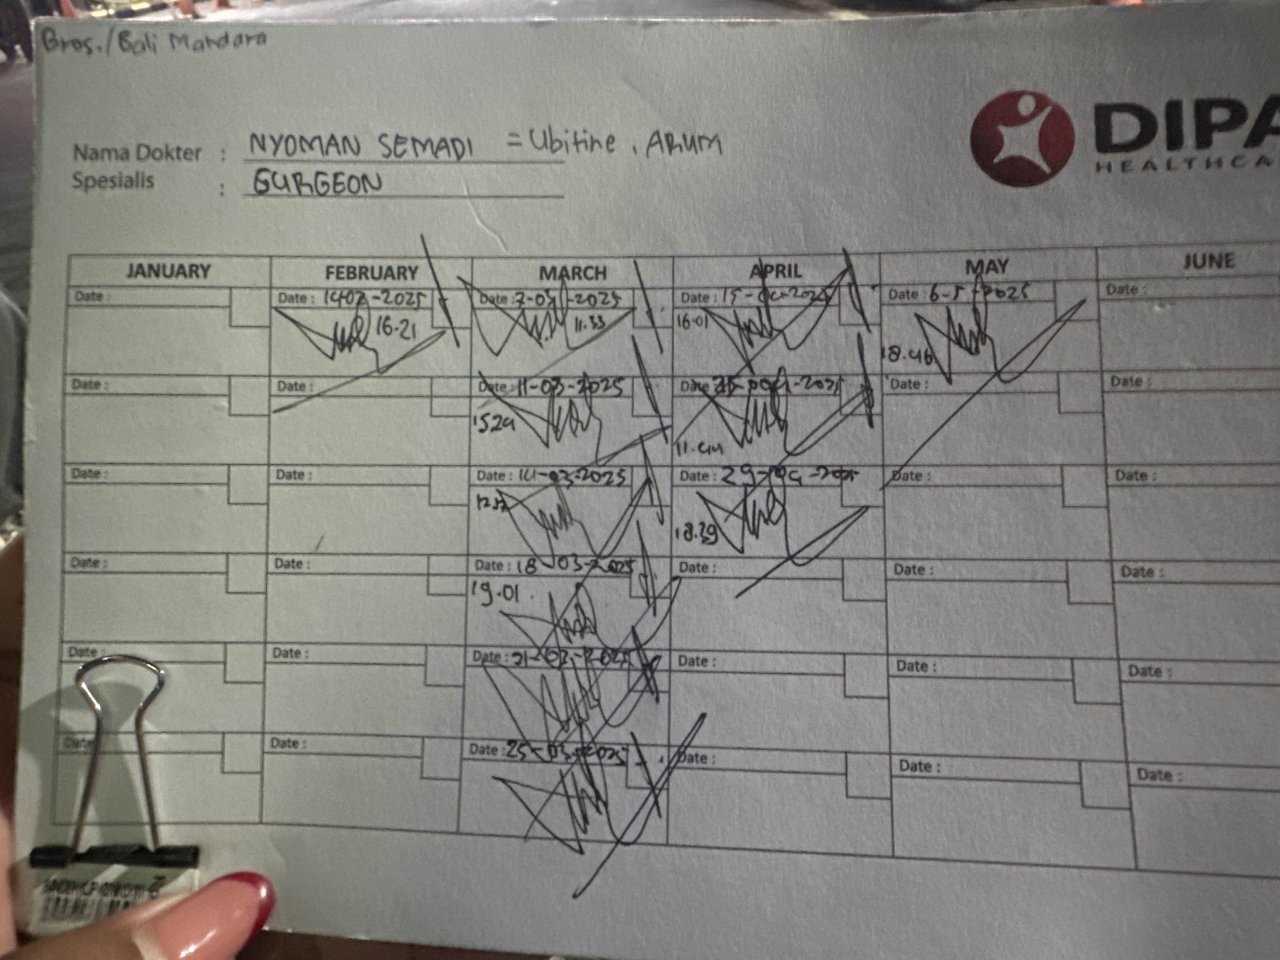 Bros./Bali Mandara
DIPA
HEALTHCA
Nama Dokter : NYOMAN SEMADI = Ubitine, ARUM
Spesialis : SURGEON
JANUARY FEBRUARY MARCH APRIL MAY JUNE
Date : Date : 1402-2025 Date : 7-03-2025 Date : 15-04-2025 Date : 6-5-2025 Date :
16.21 11.33 16.01 18.46
Date : Date : Date : 11-03-2025 Date : Date : Date :
15.29 11.44
Date : Date : Date : 14-03-2025 Date : 29-04-2025 Date : Date :
18.39
Date : Date : Date : 18-03-2025 Date : Date : Date :
19.01
Date : Date : Date : 21-03-2025 Date : Date : Date :
Date : Date : Date : 25-03-2025 Date : Date : Date :